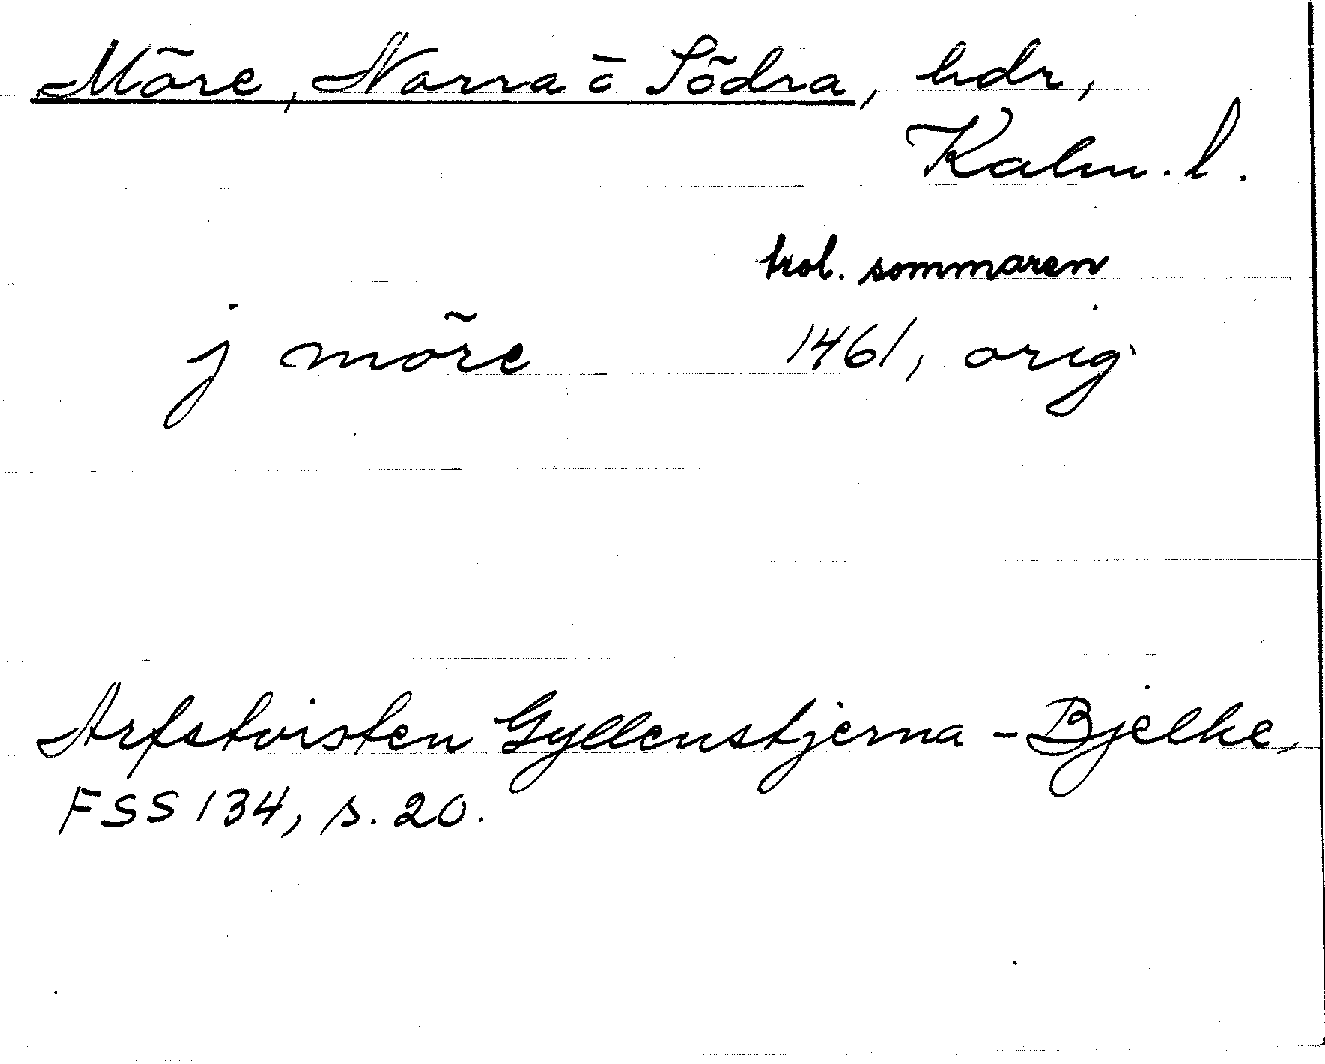 Möre, Norra o Södra, hdr,
Kalm. l.
trol. sommaren
j möre 1461, orig
Arfstvisten Gyllenstjerna - Bjelke,
FSS 134, s. 20.